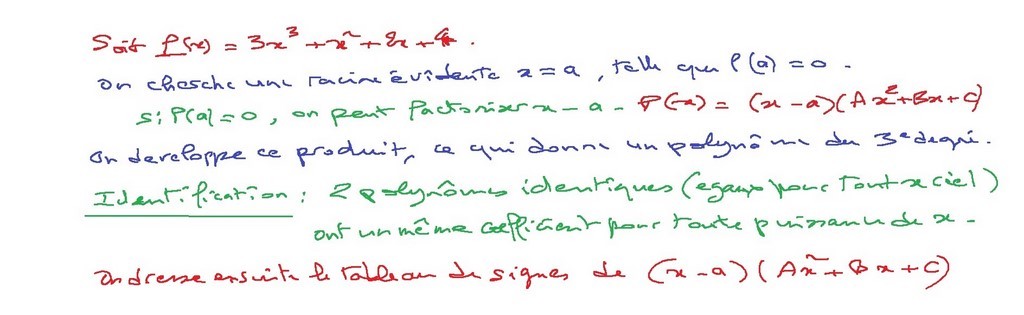 Soit P(x) = 3x³ + x² + 8x + 4.
on cherche une racine évidente x = a, telle que P(a) = 0.
si P(a) = 0, on peut factoriser x - a - P(x) = (x - a)(Ax² + Bx + C)
on developpe ce produit, ce qui donne un polynôme du 3e degré.
Identification : 2 polynômes identiques (egaux pour tout x réel)
ont un même coefficient pour toute puissance de x -
on dresse ensuite le tableau de signes de (x - a)(Ax² + Bx + C)